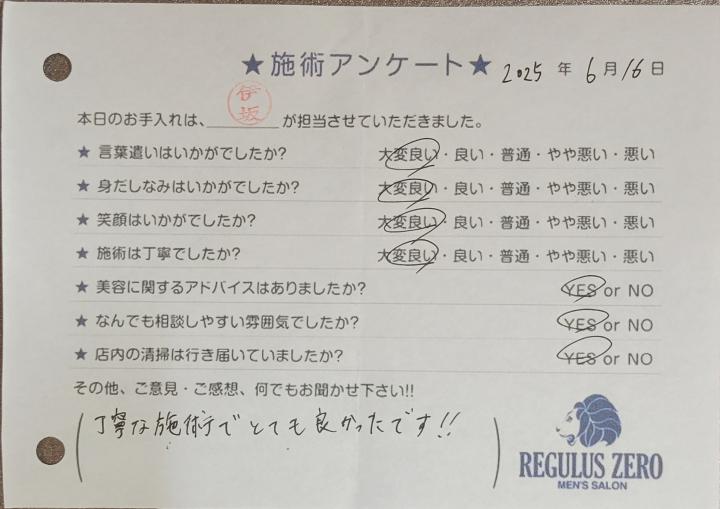 ★施術アンケート★ 2025 年 6 月 16 日
伊坂
本日のお手入れは、________が担当させていただきました。
★ 言葉遣いはいかがでしたか? 大変良い・良い・普通・やや悪い・悪い
★ 身だしなみはいかがでしたか? 大変良い・良い・普通・やや悪い・悪い
★ 笑顔はいかがでしたか? 大変良い・良い・普通・やや悪い・悪い
★ 施術は丁寧でしたか? 大変良い・良い・普通・やや悪い・悪い
★ 美容に関するアドバイスはありましたか? YES or NO
★ なんでも相談しやすい雰囲気でしたか? YES or NO
★ 店内の清掃は行き届いていましたか? YES or NO
その他、ご意見・ご感想、何でもお聞かせ下さい!!
丁寧な施術でとても良かったです!!
REGULUS ZERO
MEN'S SALON